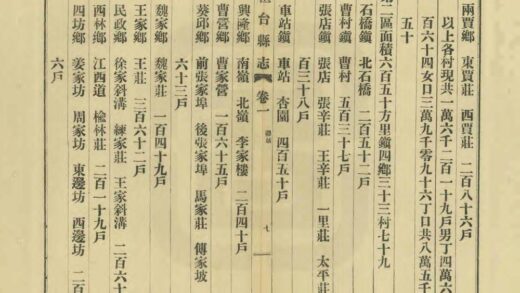 兩賈鄉 東賈莊 西賈莊 二百八十六戶
以上各村現共一萬六千二百一十九戶男丁四萬
百六十四女口三萬九千零九十六丁口共八萬五千
五十
第二區面積六百五十方里鎮四鄉三十三村七十九
石橋鎮 北石橋 二百五十二戶
曹村鎮 曹村 五百三十七戶
張店鎮 張店 張辛莊 王辛莊 一里莊 太平莊
百三十八戶
車站鎮 車站 杏園 四百五十戶
桓台縣志 卷一 七
興隆鄉 南嶺 北嶺 李家樓 二百四十戶
曹營鄉 曹家營 一百六十五戶
葵邱鄉 前張家埠 後張家埠 馬家莊 傅家坡
六十三戶
魏家鄉 魏家莊 一百四十九戶
王家鄉 王莊 三百六十二戶
民政鄉 徐家斜溝 練家莊 王家斜溝 二百六十
西林鄉 江西道 楡林莊 二百一十九戶
四坊鄉 姜家坊 周家坊 東邊坊 西邊坊 二百
六戶